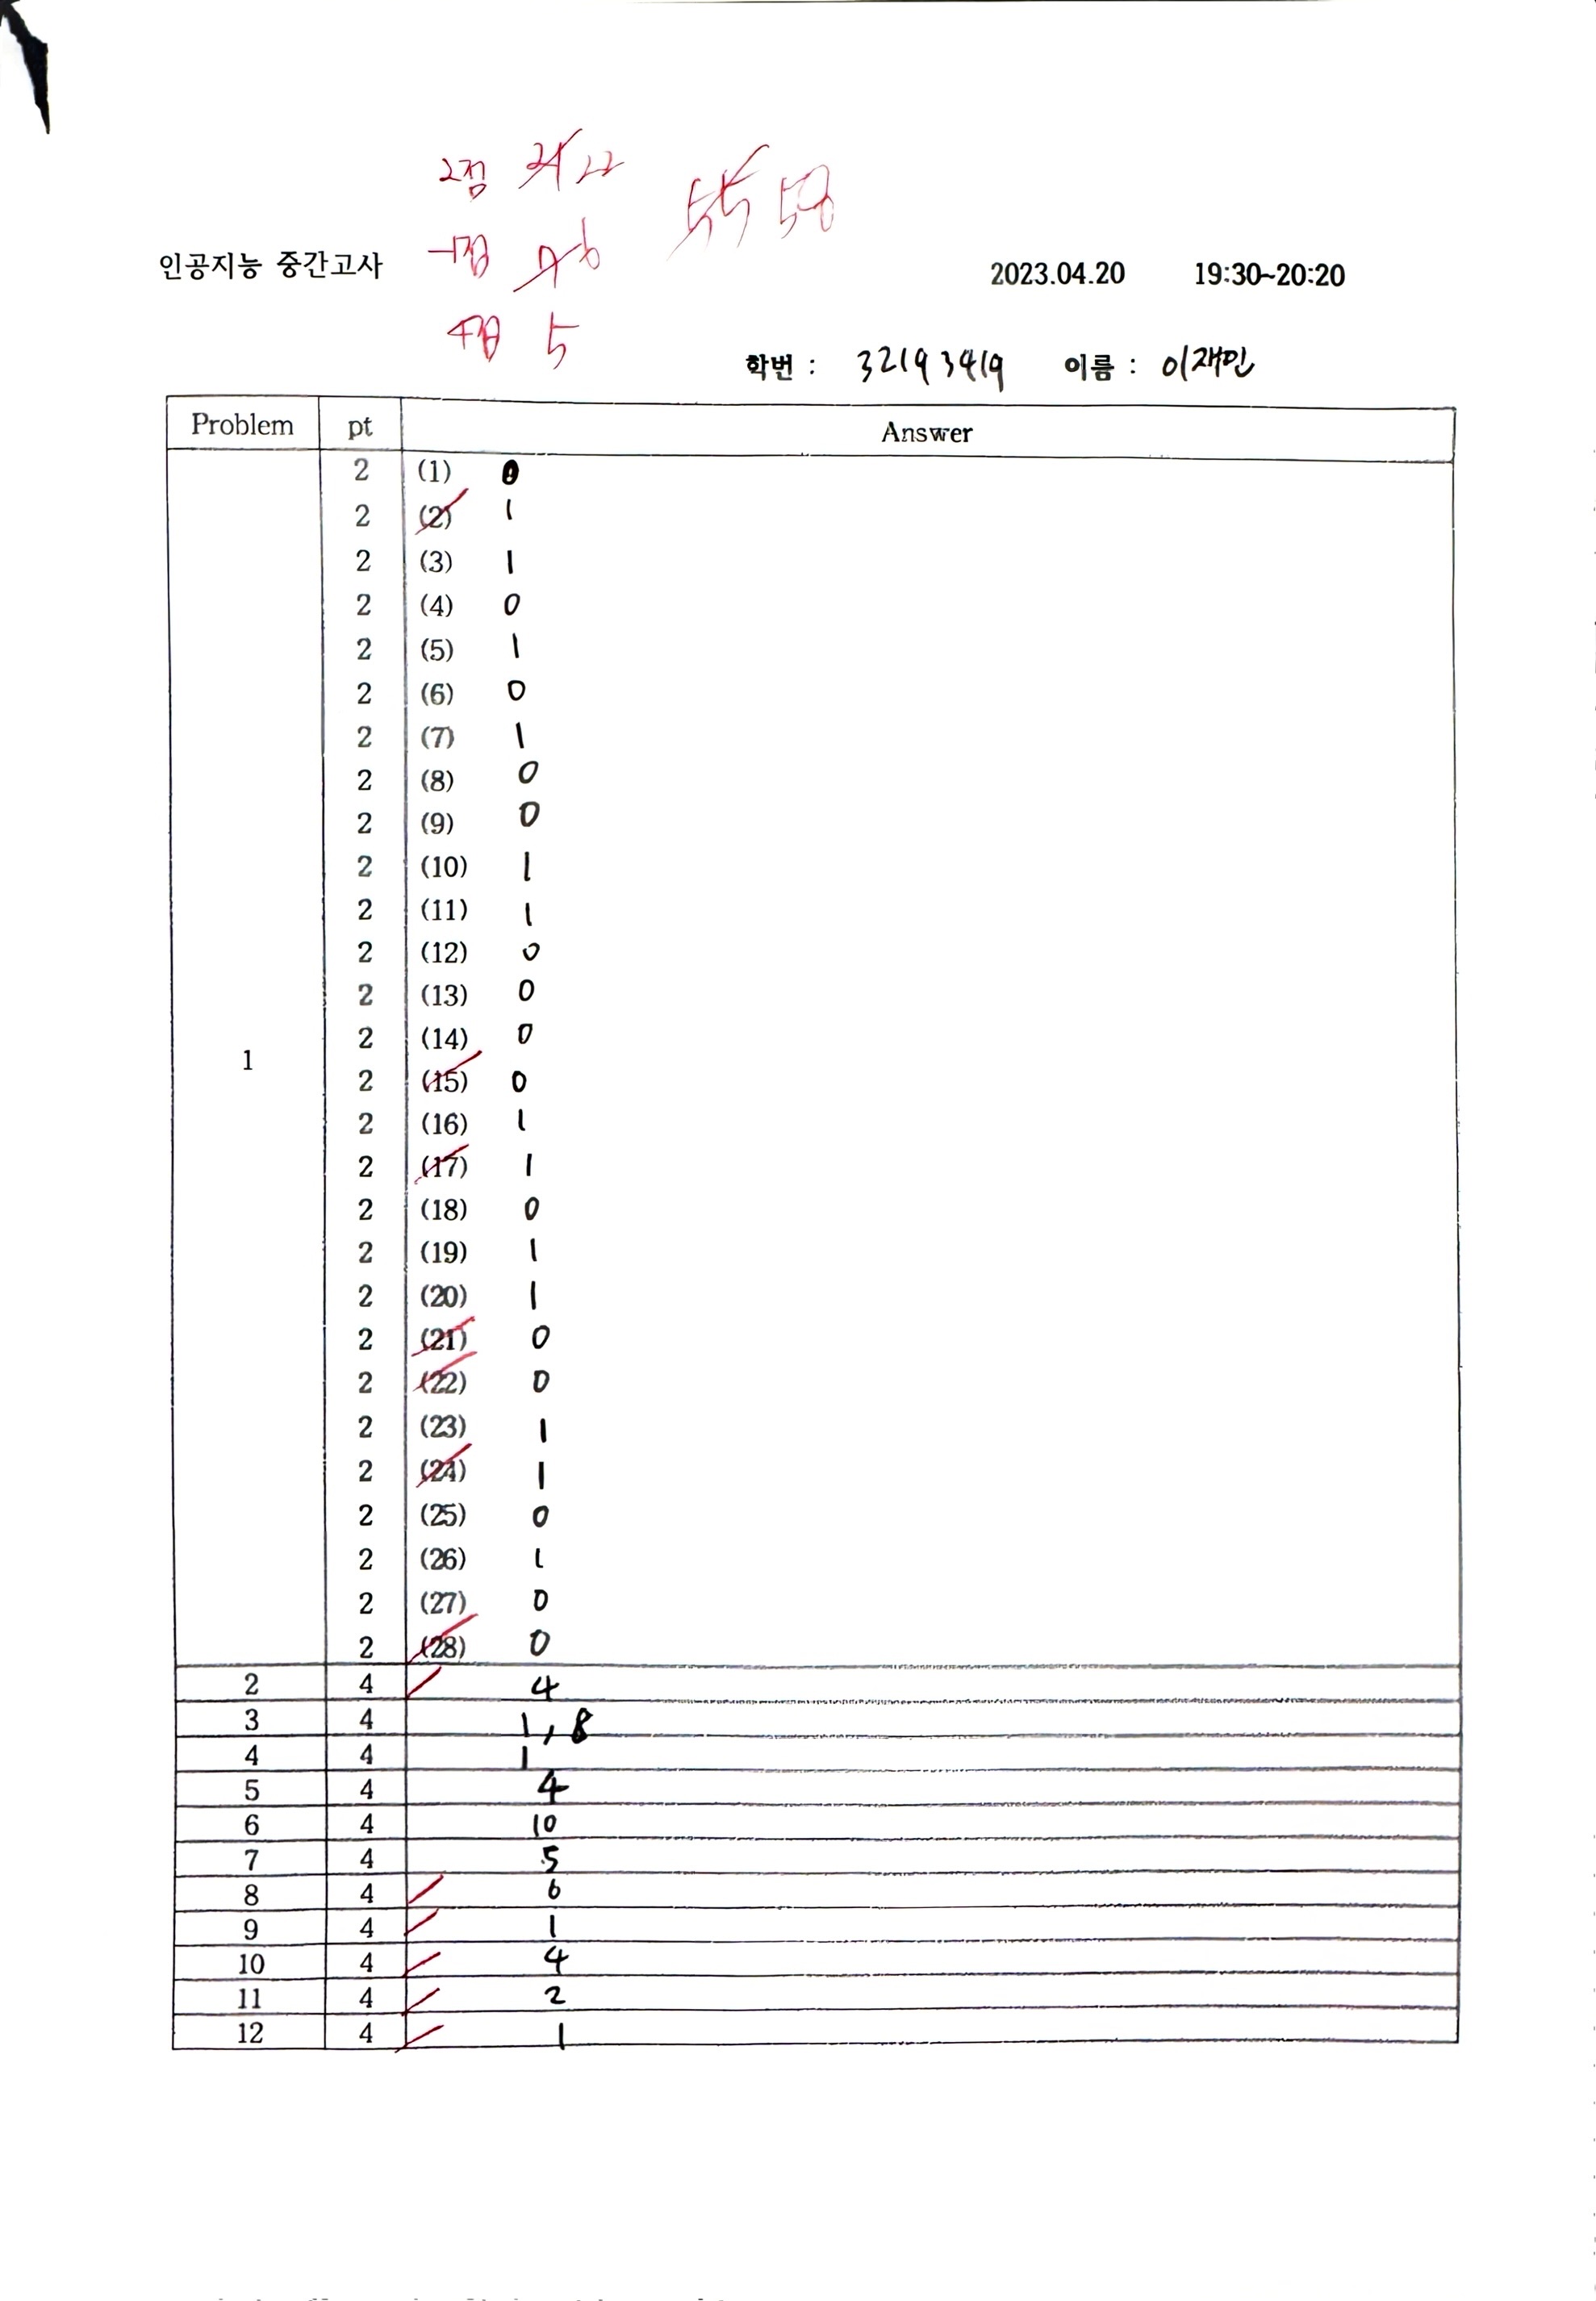 2점 21 22 55 58
-1점 7 6
인공지능 중간고사 2023.04.20 19:30~20:20
4점 5
학번 : 32193419 이름 : 이재민
Problem pt Answer
2 (1) 0
2 (2) 1
2 (3) 1
2 (4) 0
2 (5) 1
2 (6) 0
2 (7) 1
2 (8) 0
2 (9) 0
2 (10) 1
2 (11) 1
2 (12) 0
2 (13) 0
2 (14) 0
1
2 (15) 0
2 (16) 1
2 (17) 1
2 (18) 0
2 (19) 1
2 (20) 1
2 (21) 0
2 (22) 0
2 (23) 1
2 (24) 1
2 (25) 0
2 (26) 1
2 (27) 0
2 (28) 0
2 4 4
3 4 1, 8
4 4 1
5 4 4
6 4 10
7 4 5
8 4 6
9 4 1
10 4 4
11 4 2
12 4 1